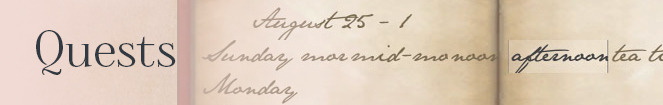 Quests
August 25 - 1
Sunday mor mid-monoon afternoon tea ti
Monday